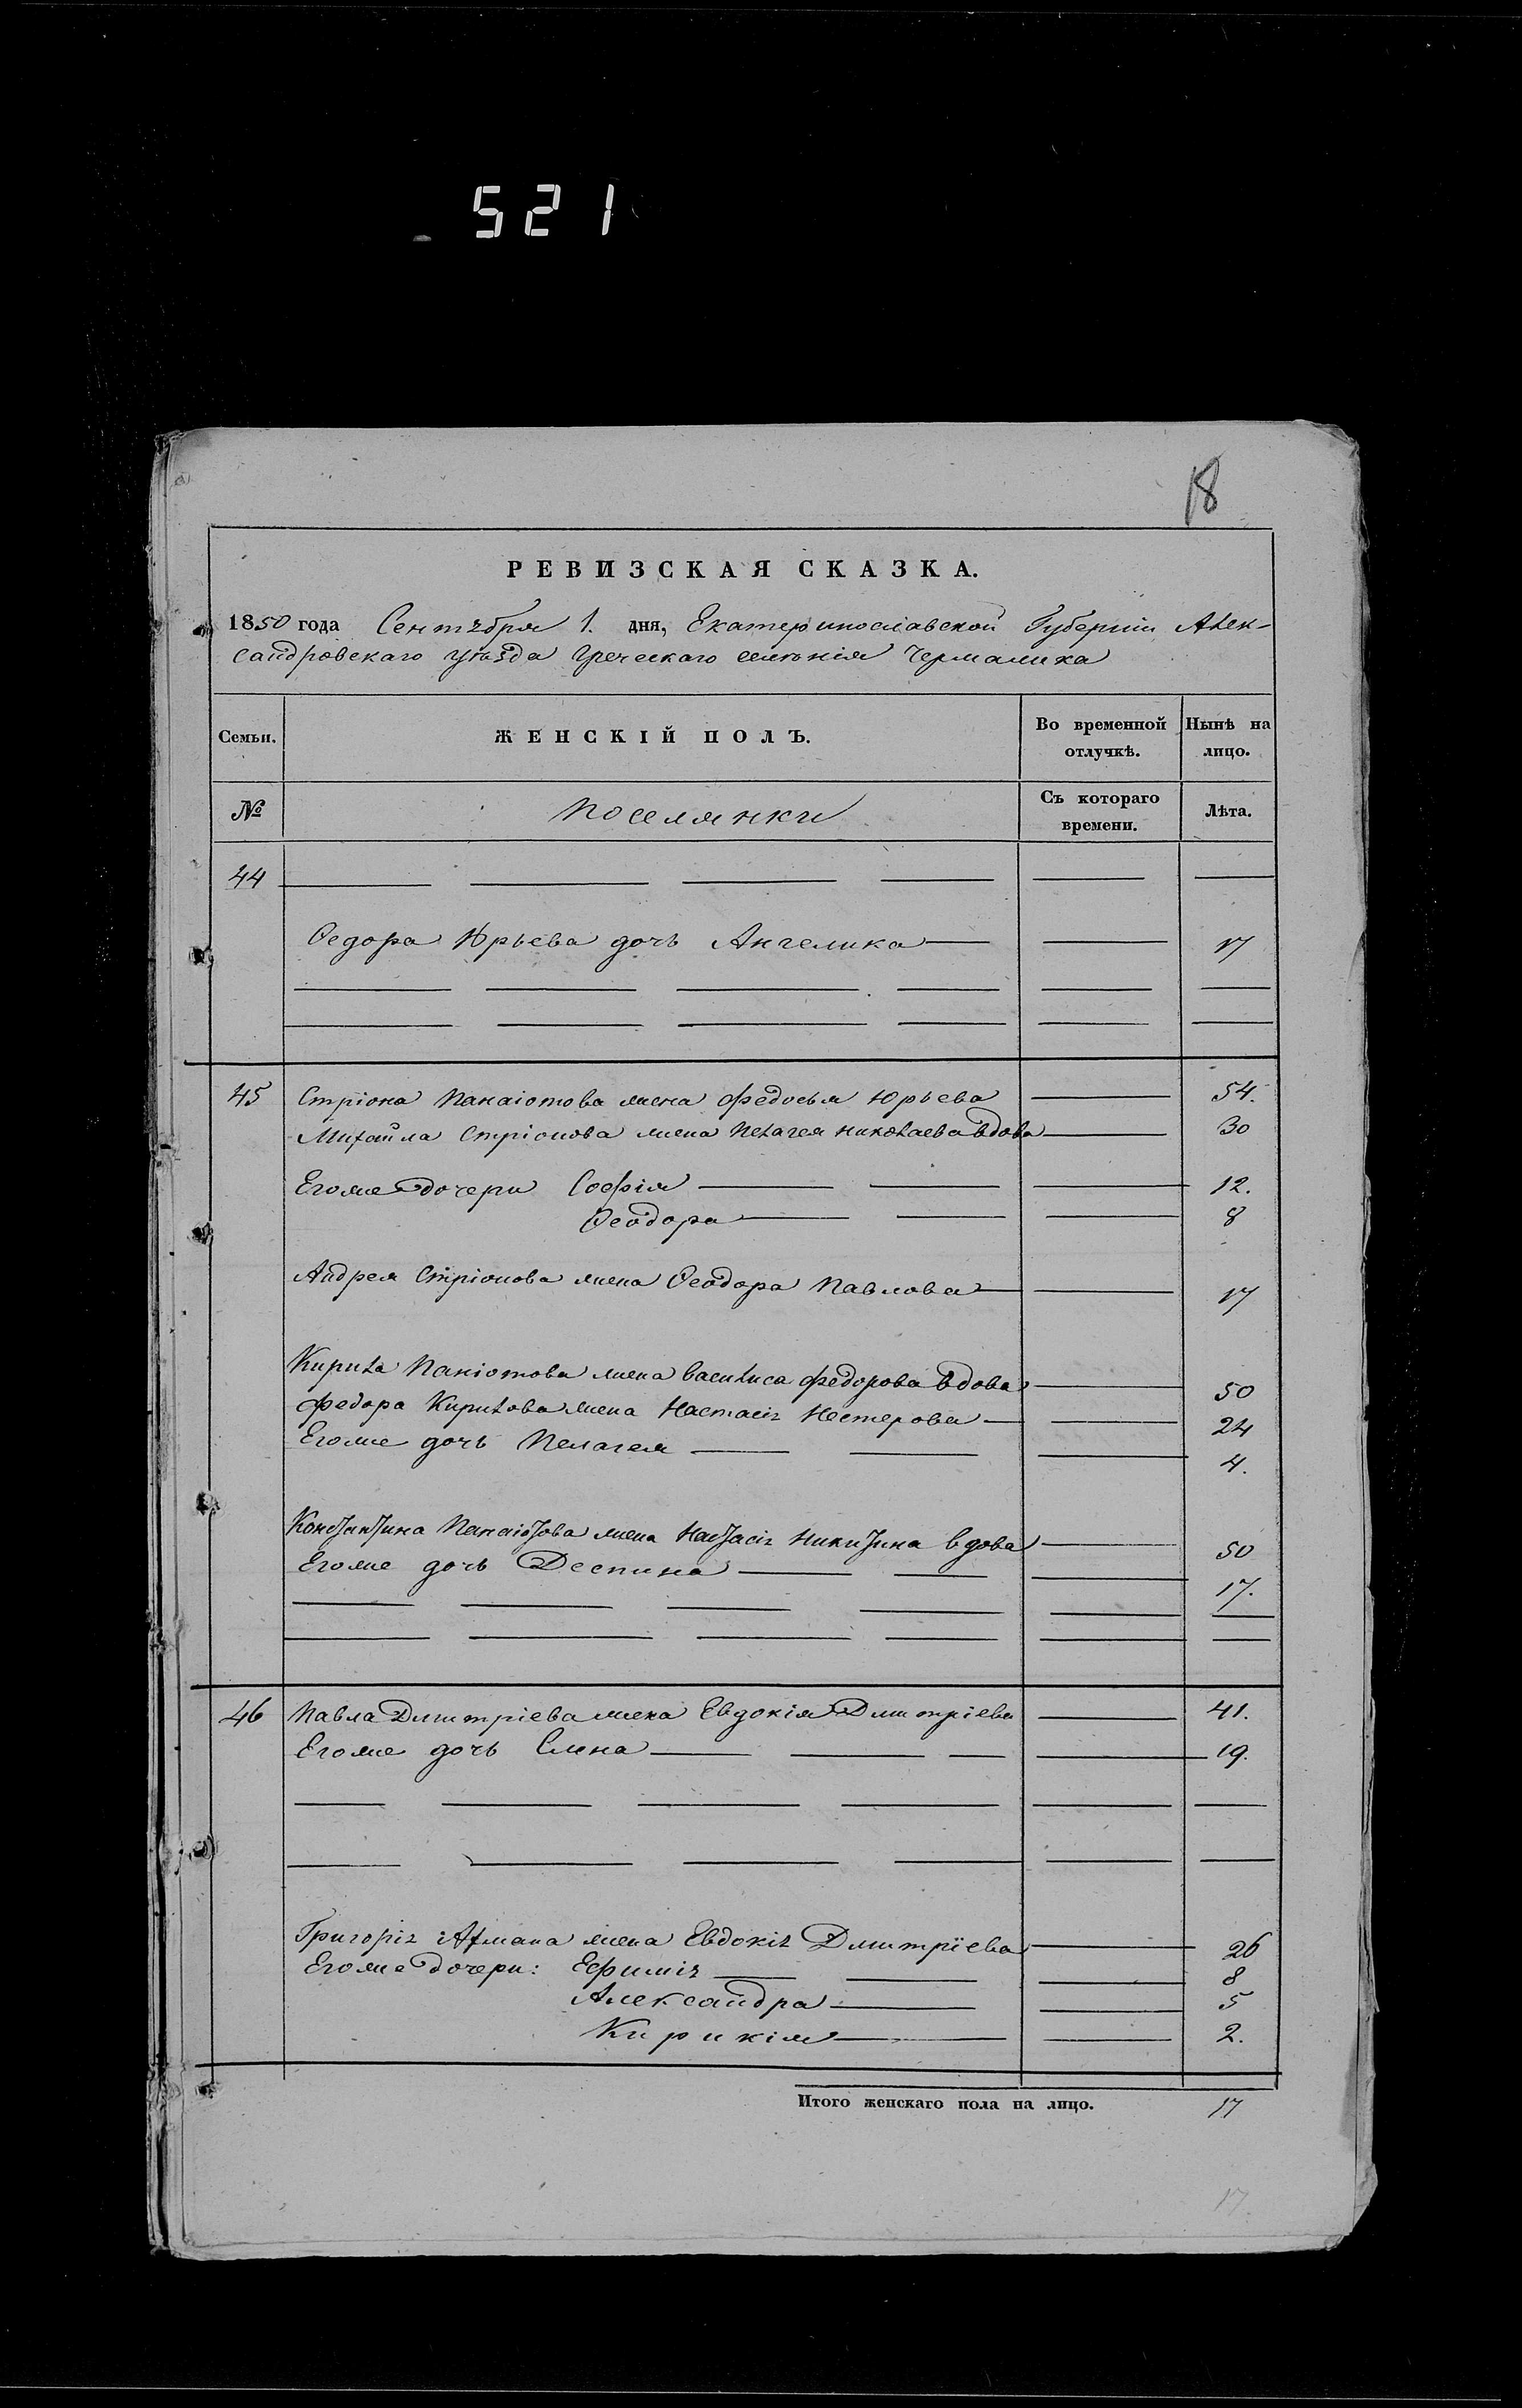 521
18
РЕВИЗСКАЯ СКАЗКА.
1850 года Сентября 1. дня, Екатеринославской Губерніи Алек-
сандровскаго уѣзда Греческаго селѣнія Чермалика
Семьи. ЖЕНСКІЙ ПОЛЪ. Во временной отлучкѣ. Нынѣ на лицо.
№ Поселянки Съ котораго времени. Лѣта.
44
Ѳедора Юрьева дочь Ангелика 17
45 Стріона Панаіотова жена Федосья Юрьева 54.
Михайла Стріонова жена Пелагея Николаева вдова 30
Егоже дочери Софія 12.
Ѳеодора 8
Андрея Стріонова жена Ѳеодора Павлова 17
Кирила Паніотова жена Василиса Федорова вдова 50
Федора Кирилова жена Настасія Нестерова 24
Егоже дочь Пелагея 4.
Константина Панаіотова жена Настасія Никитина вдова 50
Егоже дочь Деспина 17.
46 Павла Дмитріева жена Евдокія Дмитріева 41.
Егоже дочь Елена 19.
Григорія Атмана жена Евдокія Дмитріева 26
Егоже дочери: Ефимія 8
Александра 5
Кирикія 2.
Итого женскаго пола на лицо. 17
17.